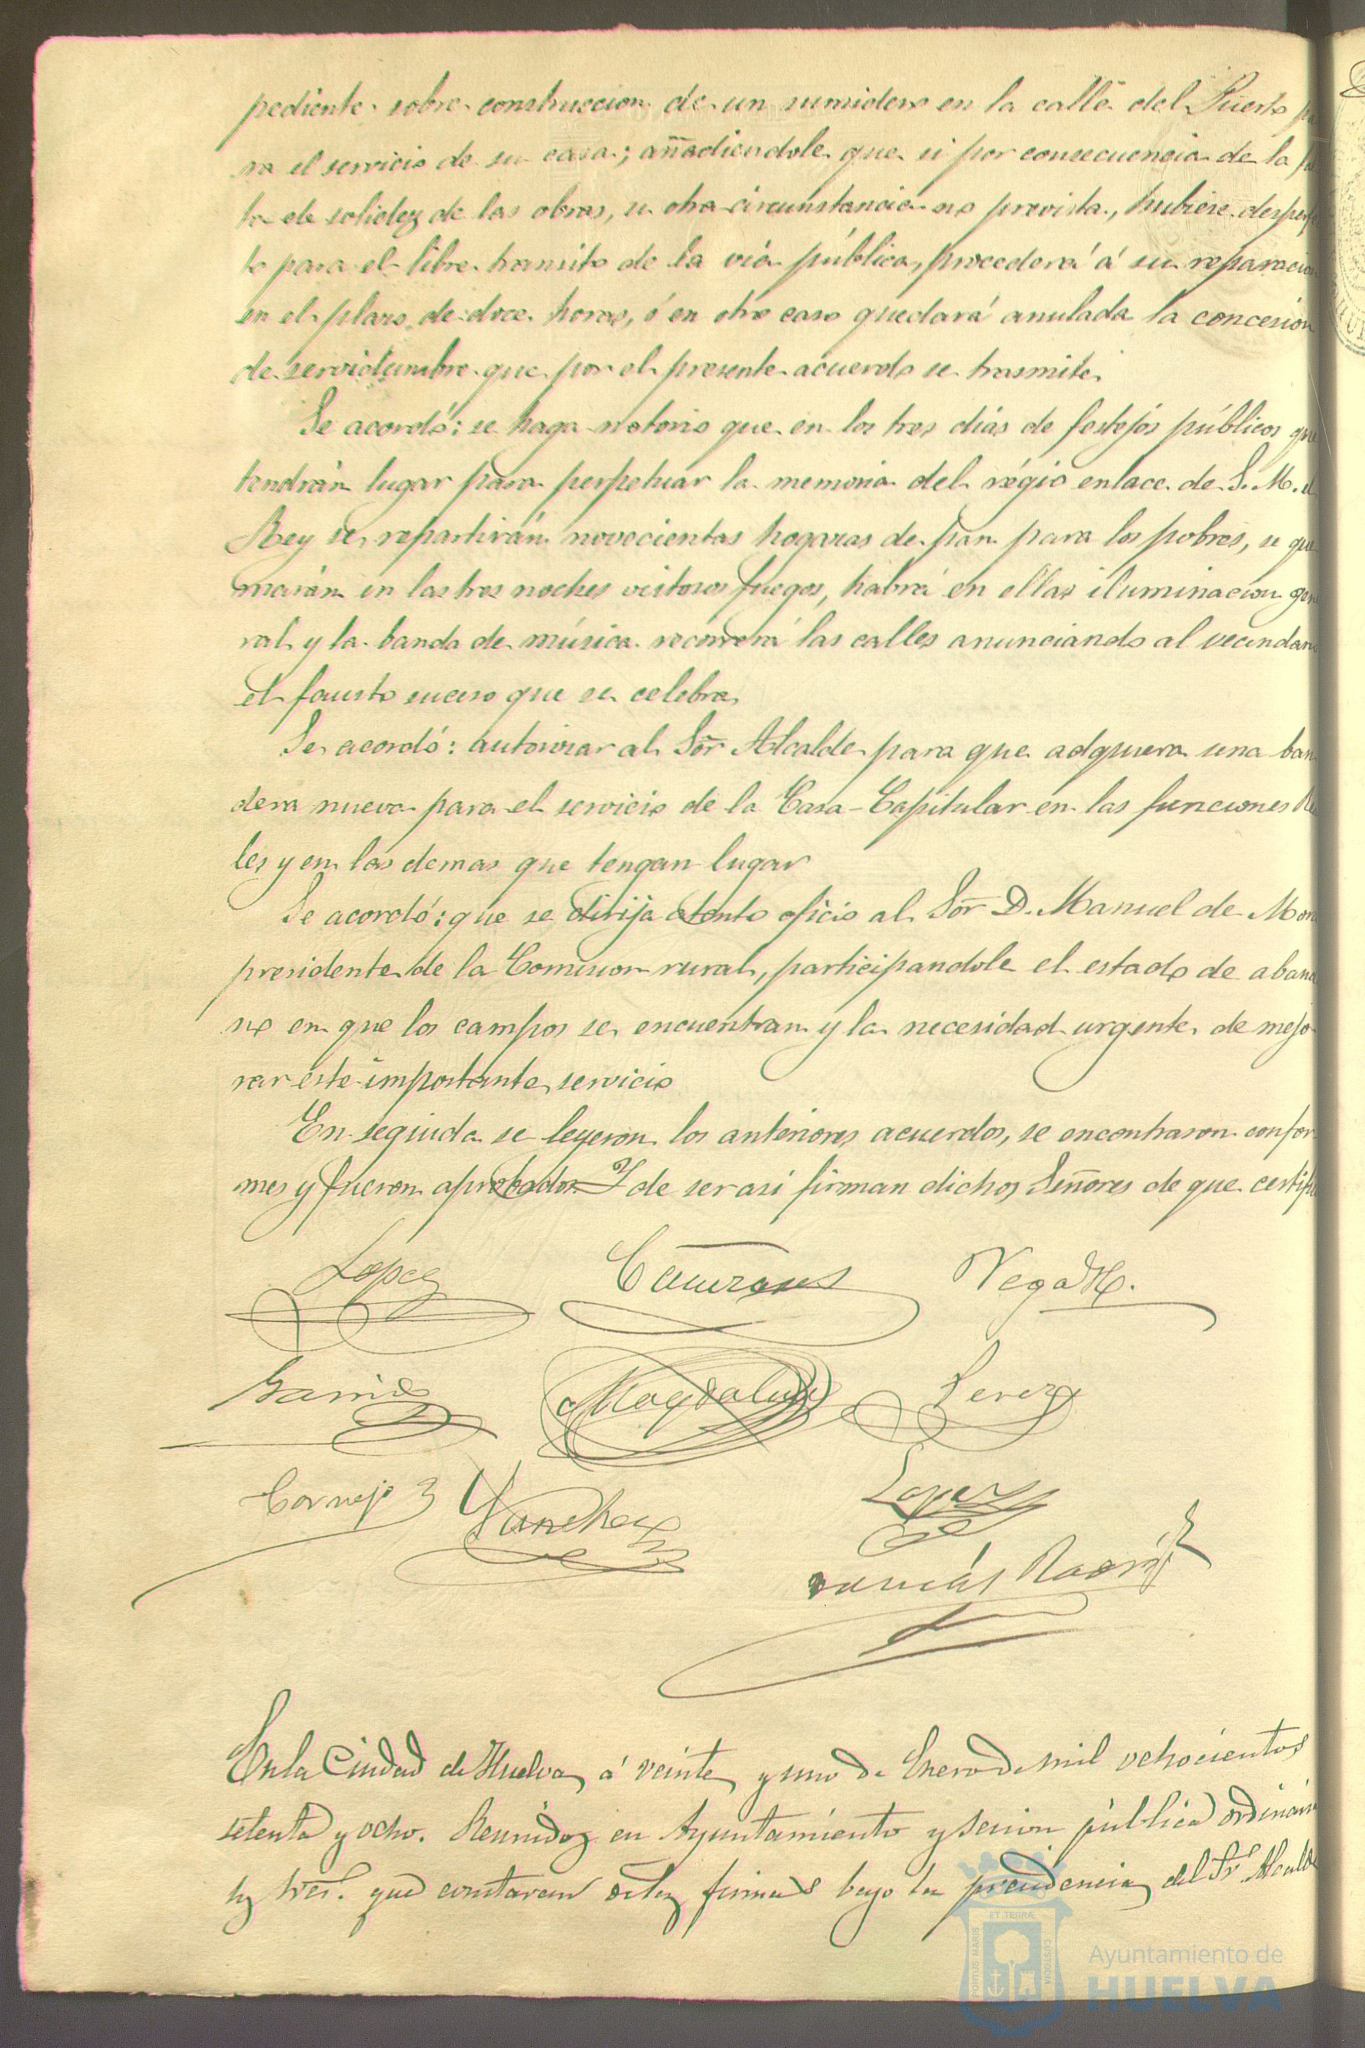 pediente sobre construccion de un sumidero en la calle del Puerto pa
ra el servicio de su casa; añadiendole que si por consecuencia de la fal
ta de solidez de las obras, u otra circunstancia no prevista, hubiere desperfec
to para el libre transito de la via pública, procederá á su reparacion
en el plazo de doce horas, ó en otro caso quedará anulada la concesión
de servidumbre que por el presente acuerdo se trasmite.
Se acordó: se haga notorio que en los tres dias de festejos públicos que
tendrán lugar para perpetuar la memoria del régio enlace de S. M. el
Rey se repartirán novecientas hogazas de pan para los pobres, se que
marán en las tres noches vistosos fuegos, habrá en ellas iluminacion gene
ral y la banda de música recorrerá las calles anunciando al vecindario
el fausto suceso que se celebra.
Se acordó: autorizar al Sór Alcalde para que adquiera una ban
dera nueva para el servicio de la Casa-Capitular en las funciones Rea
les y en las demas que tengan lugar
Se acordó: que se dirija atento oficio al Sór D. Manuel de Mora
presidente de la Comision rural, participandole el estado de abando
no en que los campos se encuentran y la necesidad urgente de mejo
rar este importante servicio
En seguida se leyeron los anteriores acuerdos, se encontraron confor
mes y fueron aprobados. Y de ser asi firman dichos Señores de que certifico
Lopez
Vega H.
Garrido Magdalena Perez
Cornejo Sanchez Lopez
En la Ciudad de Huelva á veinte y uno de Enero de mil ochocientos
setenta y ocho. Reunidos en Ayuntamiento y sesion pública ordinaria
los Sres. que constaran de las firmas bajo la presidencia del Sr. Alcalde
PORTUS MARIS ET TERRÆ CUSTODIA
Ayuntamiento de
HUELVA